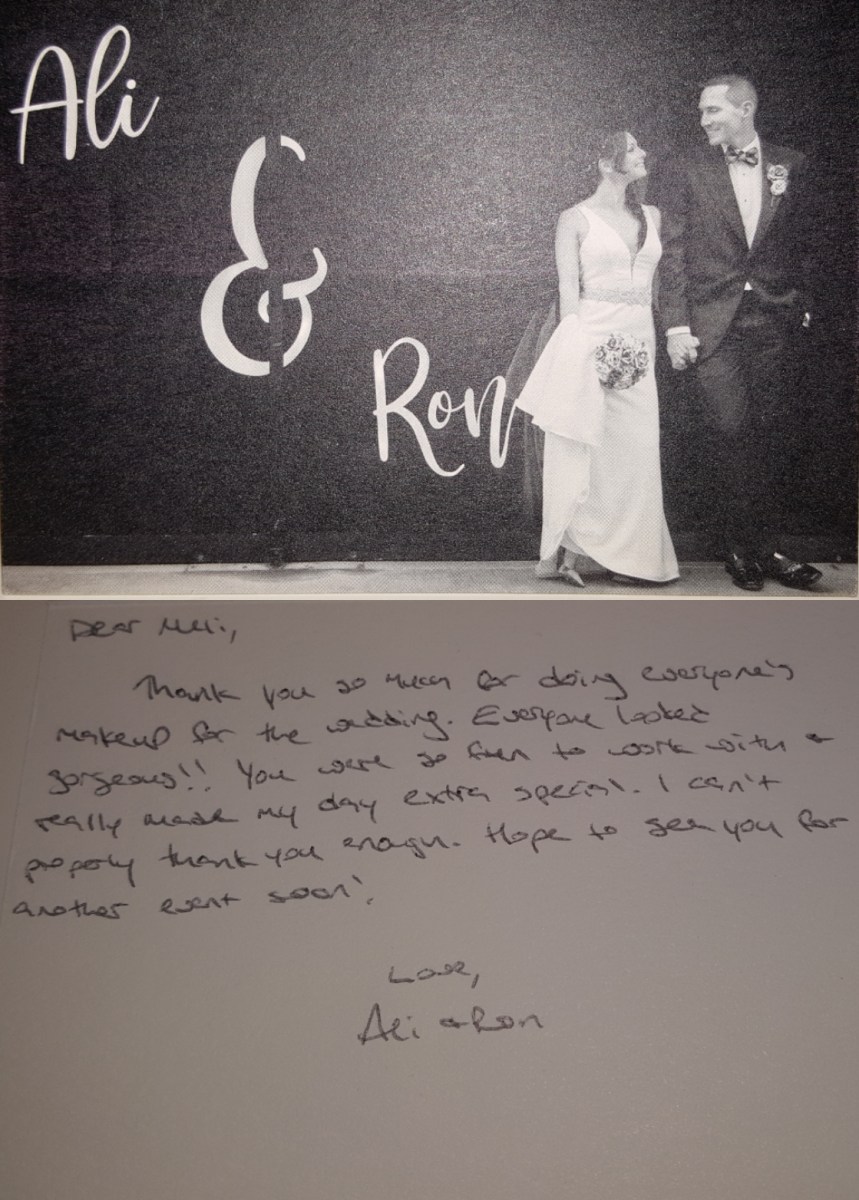 Ali
&
Ron
Dear
Thank you so much for doing everyone's
makeup for the wedding. Everyone looked
gorgeous!! You were so fun to work with &
really made my day extra special. I can't
properly thank you enough. Hope to see you for
another event soon!
Love,
Ali & Ron